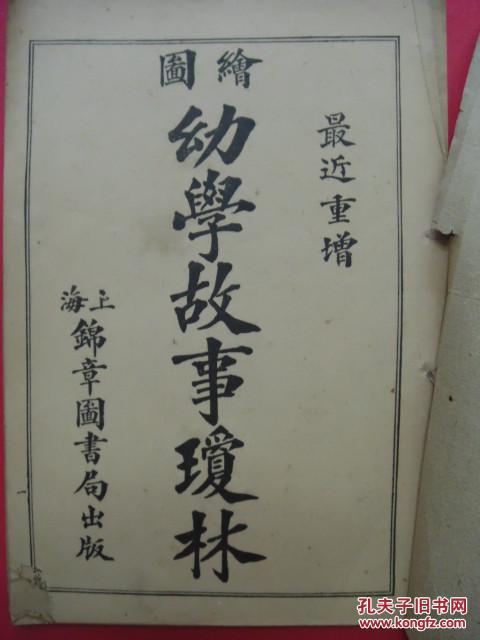 最近重增
繪圖
幼學故事瓊林
上海
錦章圖書局出版
孔夫子旧书网